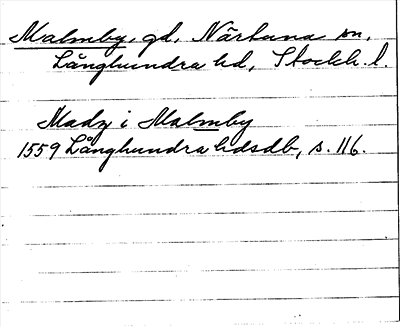 Malmby, gd, Närtuna sn,
Långhundra hd, Stockh. l.
Madz i Malmby
1559 Långhundra hdsdb, s. 116.